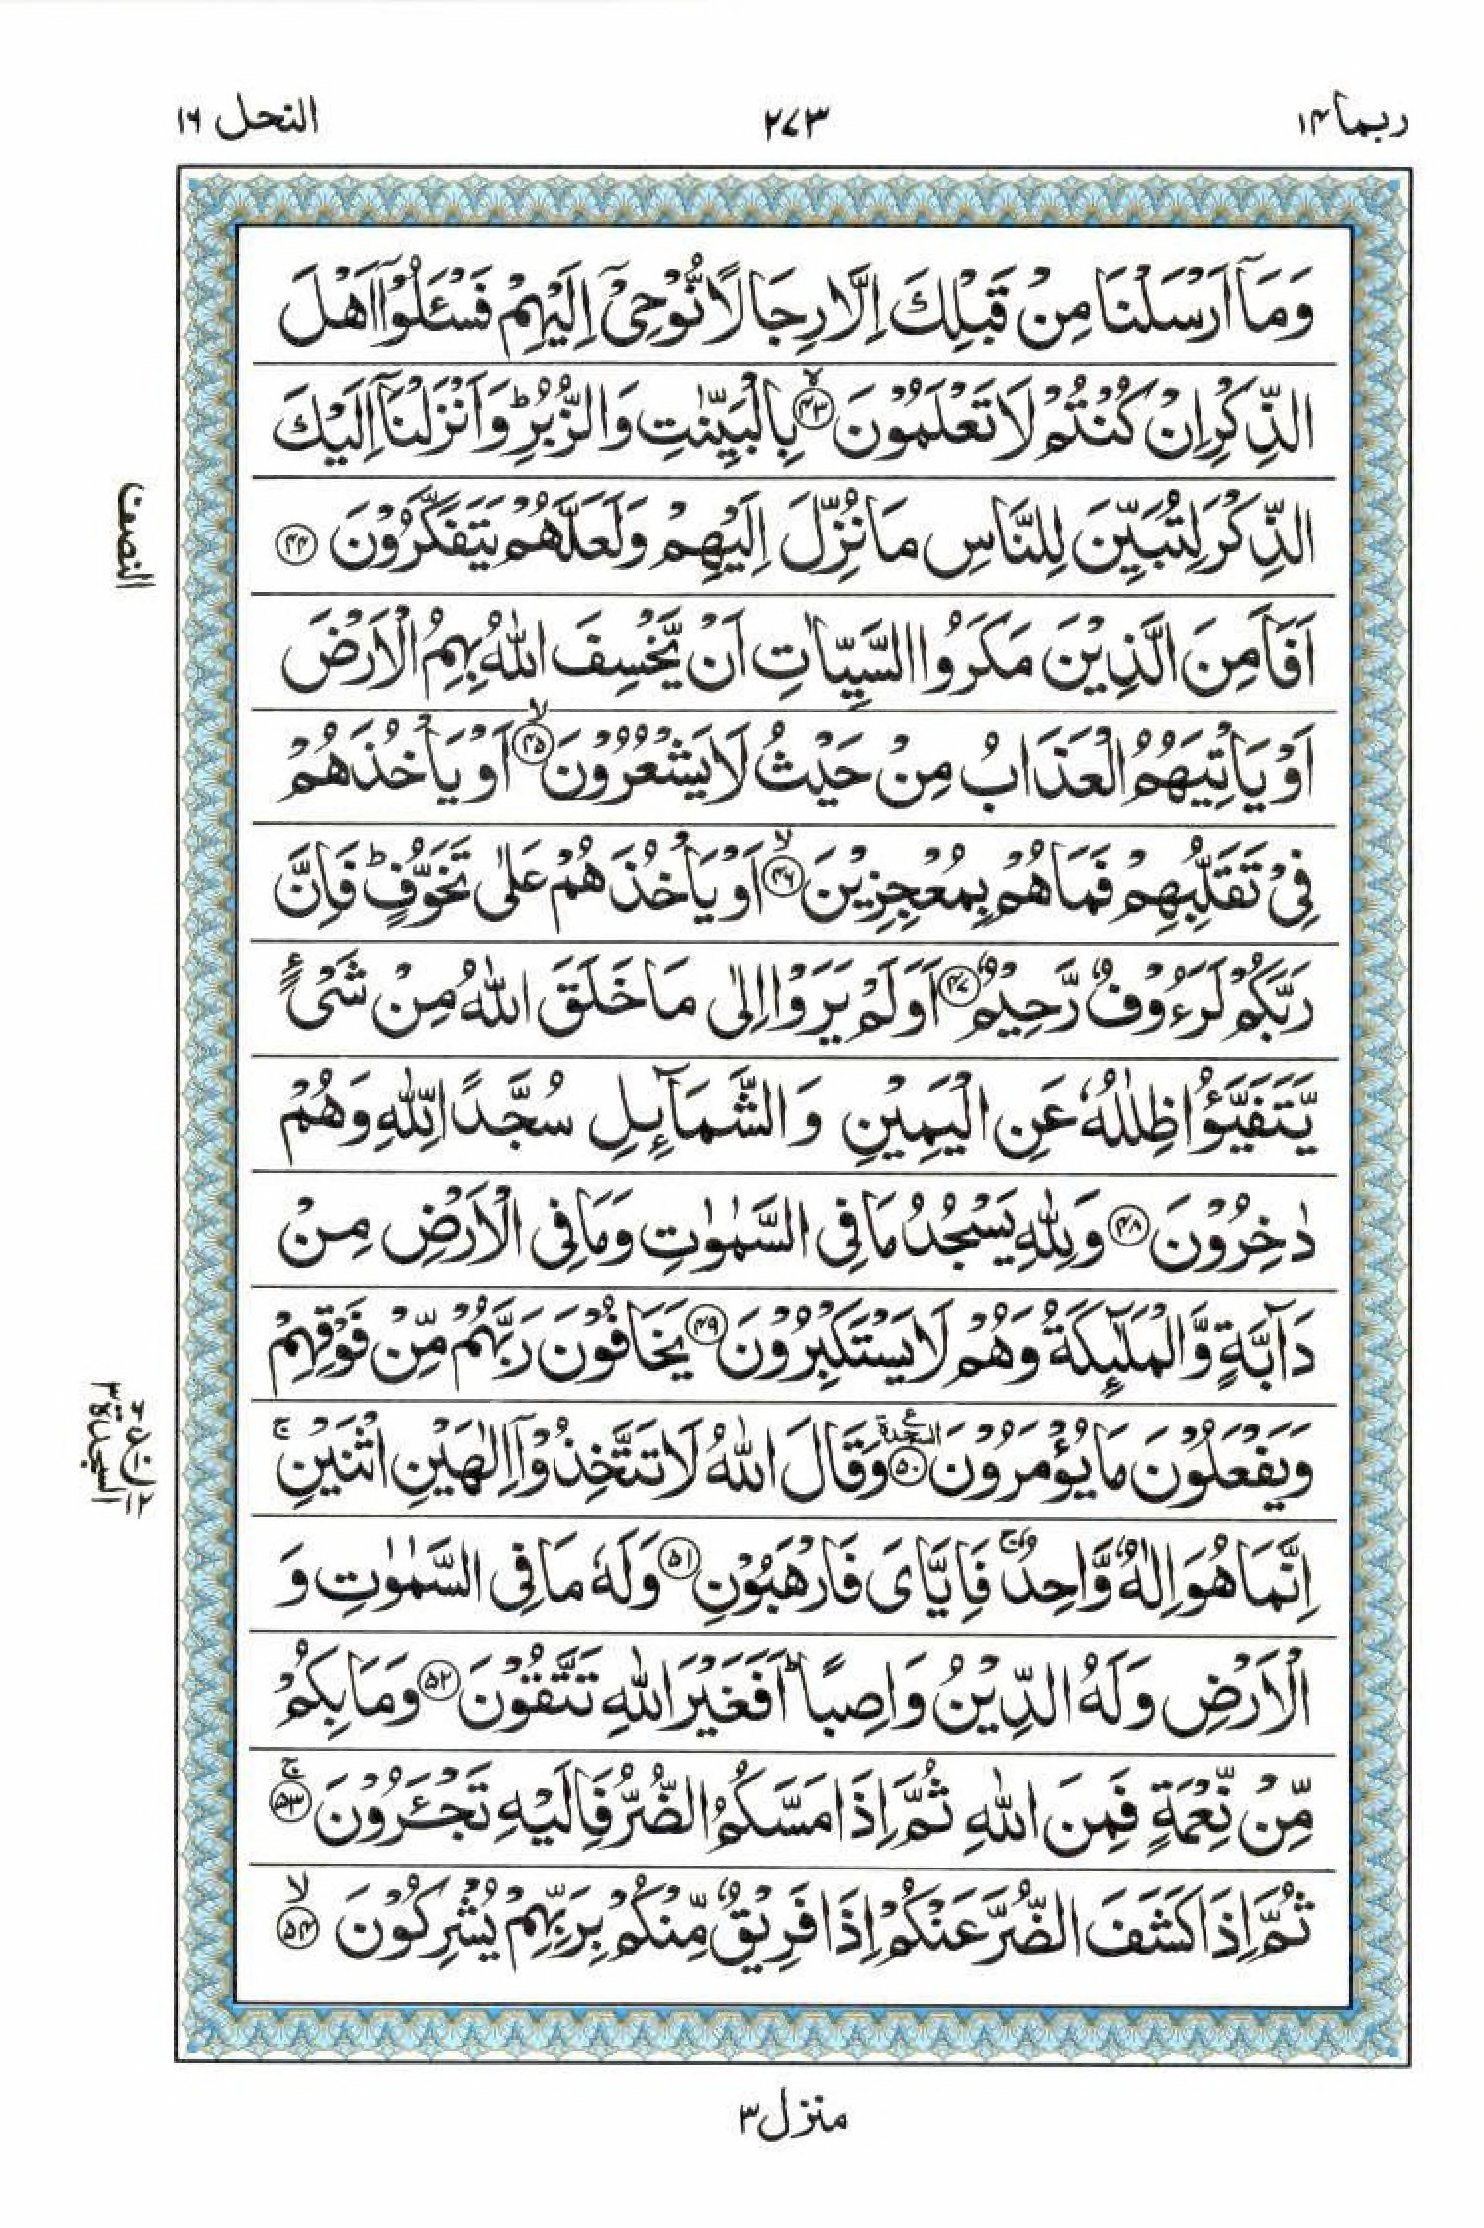 ربما ۱۴
۲۷۳
النحل ۱۶
وَمَآ اَرْسَلْنَا مِنْ قَبْلِكَ اِلَّا رِجَالًا نُّوْحِيْٓ اِلَيْهِمْ فَسْـَٔلُوْٓا اَهْلَ
الذِّكْرِ اِنْ كُنْتُمْ لَا تَعْلَمُوْنَ ۙ‏﴿۴۳﴾ بِالْبَيِّنٰتِ وَالزُّبُرِ ؕ وَاَنْزَلْنَآ اِلَيْكَ
الذِّكْرَ لِتُبَيِّنَ لِلنَّاسِ مَا نُزِّلَ اِلَيْهِمْ وَلَعَلَّهُمْ يَتَفَكَّرُوْنَ ﴿۴۴﴾
النصف
اَفَاَمِنَ الَّذِيْنَ مَكَرُوا السَّيِّاٰتِ اَنْ يَّخْسِفَ اللّٰهُ بِهِمُ الْاَرْضَ
اَوْ يَاْتِيَهُمُ الْعَذَابُ مِنْ حَيْثُ لَا يَشْعُرُوْنَ ۙ﴿۴۵﴾ اَوْ يَاْخُذَهُمْ
فِيْ تَقَلُّبِهِمْ فَمَا هُمْ بِمُعْجِزِيْنَ ۙ﴿۴۶﴾ اَوْ يَاْخُذَهُمْ عَلٰى تَخَوُّفٍ ؕ فَاِنَّ
رَبَّكُمْ لَرَءُوْفٌ رَّحِيْمٌ ﴿۴۷﴾ اَوَلَمْ يَرَوْا اِلٰى مَا خَلَقَ اللّٰهُ مِنْ شَيْءٍ
يَّتَفَيَّؤُا ظِلٰلُهٗ عَنِ الْيَمِيْنِ وَالشَّمَآئِلِ سُجَّدًا لِّلّٰهِ وَهُمْ
دٰخِرُوْنَ ﴿۴۸﴾ وَلِلّٰهِ يَسْجُدُ مَا فِي السَّمٰوٰتِ وَمَا فِي الْاَرْضِ مِنْ
دَآبَّةٍ وَّالْمَلٰٓئِكَةُ وَهُمْ لَا يَسْتَكْبِرُوْنَ ﴿۴۹﴾ يَخَافُوْنَ رَبَّهُمْ مِّنْ فَوْقِهِمْ
وَيَفْعَلُوْنَ مَا يُؤْمَرُوْنَ ﴿۵۰﴾ السجدة ع وَقَالَ اللّٰهُ لَا تَتَّخِذُوْٓا اِلٰهَيْنِ اثْنَيْنِ ۚ
السجدة ۳
ع ۱۲
اِنَّمَا هُوَ اِلٰهٌ وَّاحِدٌ ۚ فَاِيَّايَ فَارْهَبُوْنِ ﴿۵۱﴾ وَلَهٗ مَا فِي السَّمٰوٰتِ وَ
الْاَرْضِ وَلَهُ الدِّيْنُ وَاصِبًا ؕ اَفَغَيْرَ اللّٰهِ تَتَّقُوْنَ ﴿۵۲﴾ وَمَا بِكُمْ
مِّنْ نِّعْمَةٍ فَمِنَ اللّٰهِ ثُمَّ اِذَا مَسَّكُمُ الضُّرُّ فَاِلَيْهِ تَجْـَٔرُوْنَ ۚ﴿۵۳﴾
ثُمَّ اِذَا كَشَفَ الضُّرَّ عَنْكُمْ اِذَا فَرِيْقٌ مِّنْكُمْ بِرَبِّهِمْ يُشْرِكُوْنَ ۙ﴿۵۴﴾
منزل ۳